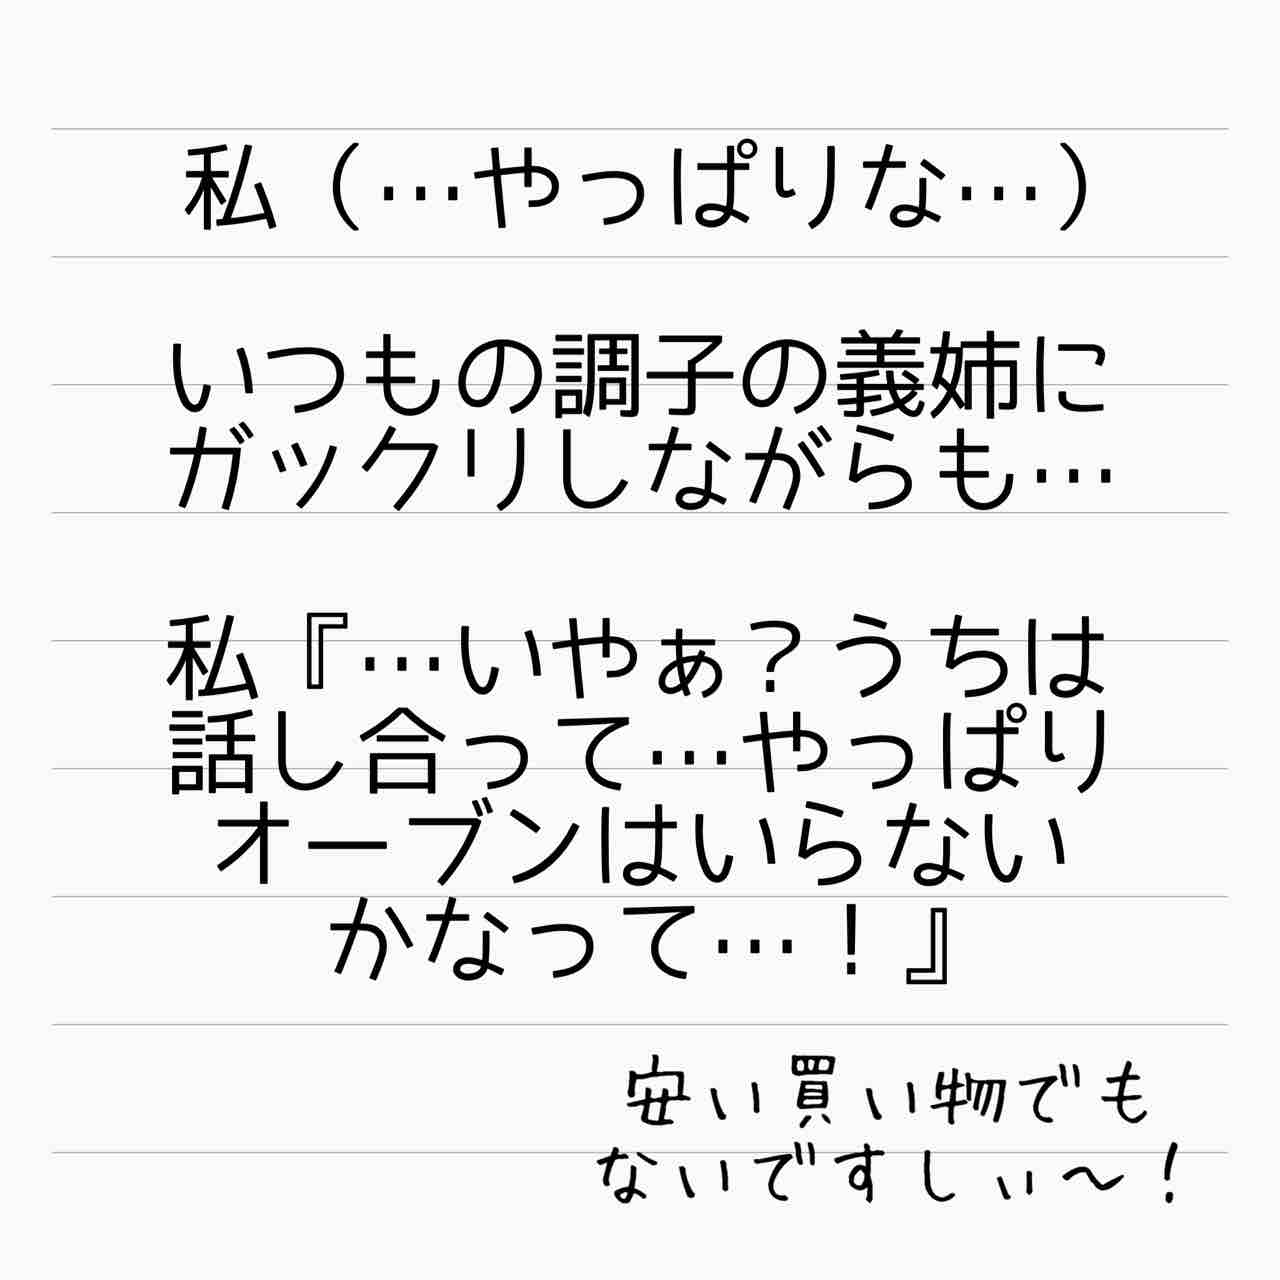 私（…やっぱりな…）
いつもの調子の義姉に
ガックリしながらも…
私『…いやぁ？うちは
話し合って…やっぱり
オーブンはいらない
かなって…！』
安い買い物でも
ないですしぃ〜！